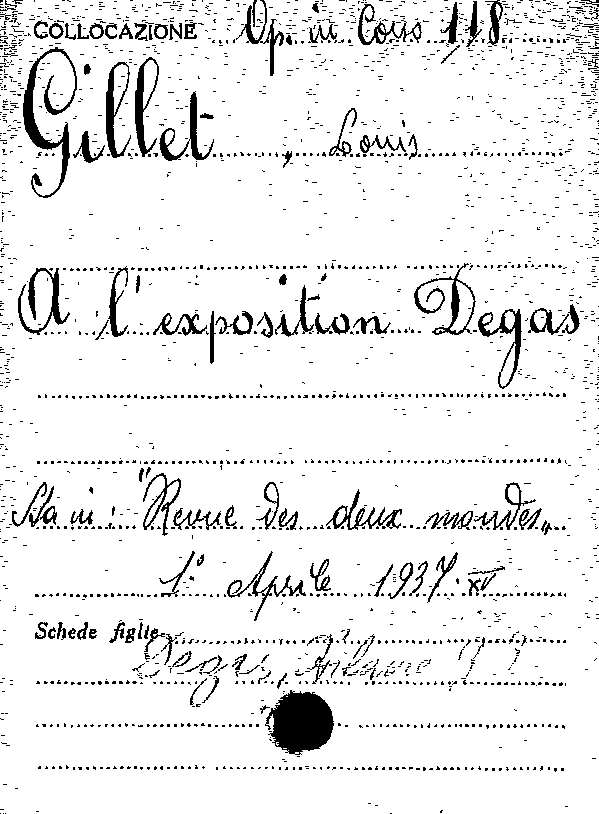 COLLOCAZIONE Op. in Cons 118
Gillet, Louis
A l'exposition Degas
Sta in: "Revue des deux mondes"
1° Aprile 1937.XV
Schede figlie
Degas,